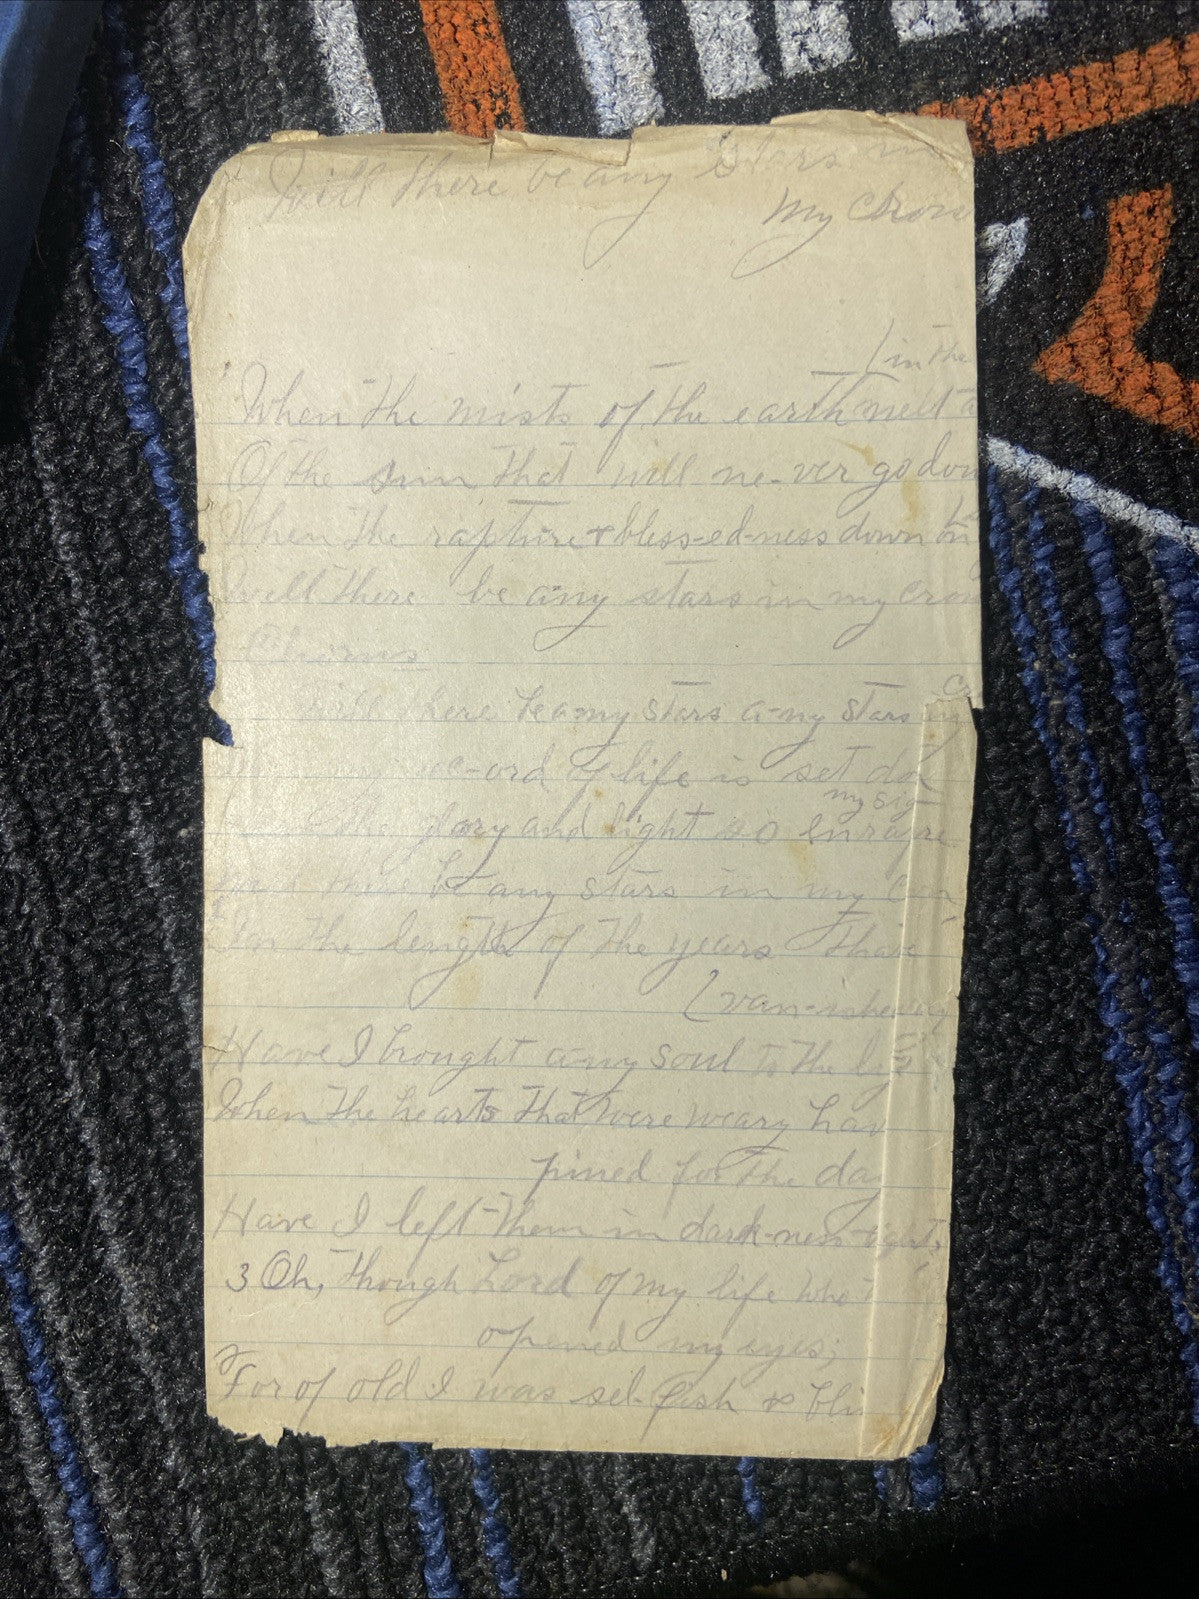 Will there be any Stars in
My Crow
[in the
When the mists of the earth melt a
Of the sun that will ne-ver go dow
When the rapture & bless-ed-ness down
Will there be any stars in my crow
Chorus
Will there be a-ny stars a-ny stars
my rec-ord of life is set do
my sig
the glory and light so enrapture
Will there be any stars in my
2 In the length of the years that
[van-ished
Have I brought a-ny soul to the
When the hearts that were weary hav
pined for the day
Have I left them in dark-ness
3 Oh, though Lord of my life who
opened my eyes;
For of old I was sel-fish & bli